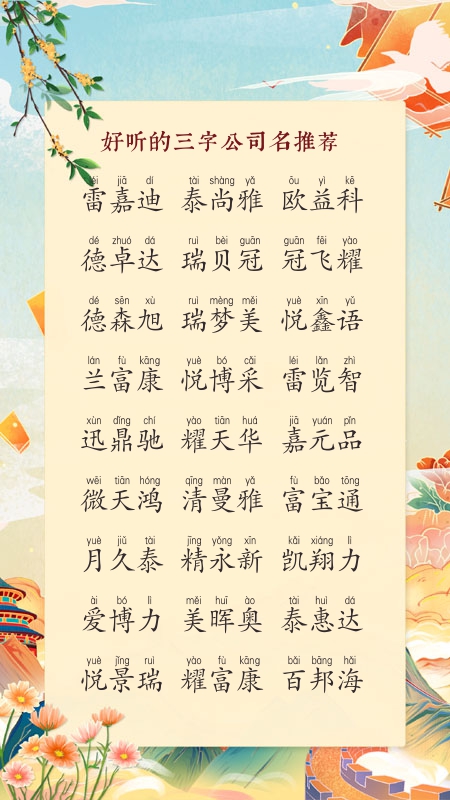 好听的三字公司名推荐
léi jiā dí tài shàng yǎ ōu yì kē
雷嘉迪 泰尚雅 欧益科
dé zhuó dá ruì bèi guān guān fēi yào
德卓达 瑞贝冠 冠飞耀
dé sēn xù ruì mèng měi yuè xīn yǔ
德森旭 瑞梦美 悦鑫语
lán fù kāng yuè bó cǎi léi lǎn zhì
兰富康 悦博采 雷览智
xùn dǐng chí yào tiān huá jiā yuán pǐn
迅鼎驰 耀天华 嘉元品
wēi tiān hóng qīng màn yǎ fù bǎo tōng
微天鸿 清曼雅 富宝通
yuè jiǔ tài jīng yǒng xīn kǎi xiáng lì
月久泰 精永新 凯翔力
ài bó lì měi huī ào tài huì dá
爱博力 美晖奥 泰惠达
yuè jǐng ruì yào fù kāng bǎi bāng hǎi
悦景瑞 耀富康 百邦海